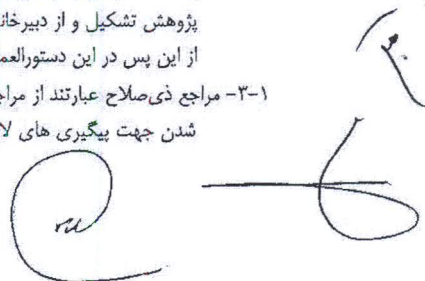 پژوهش تشکیل و از دبیرخانه
از این پس در این دستورالعمل
۳-۱- مراجع ذی‌صلاح عبارتند از مراجع
شدن جهت پیگیری های لا